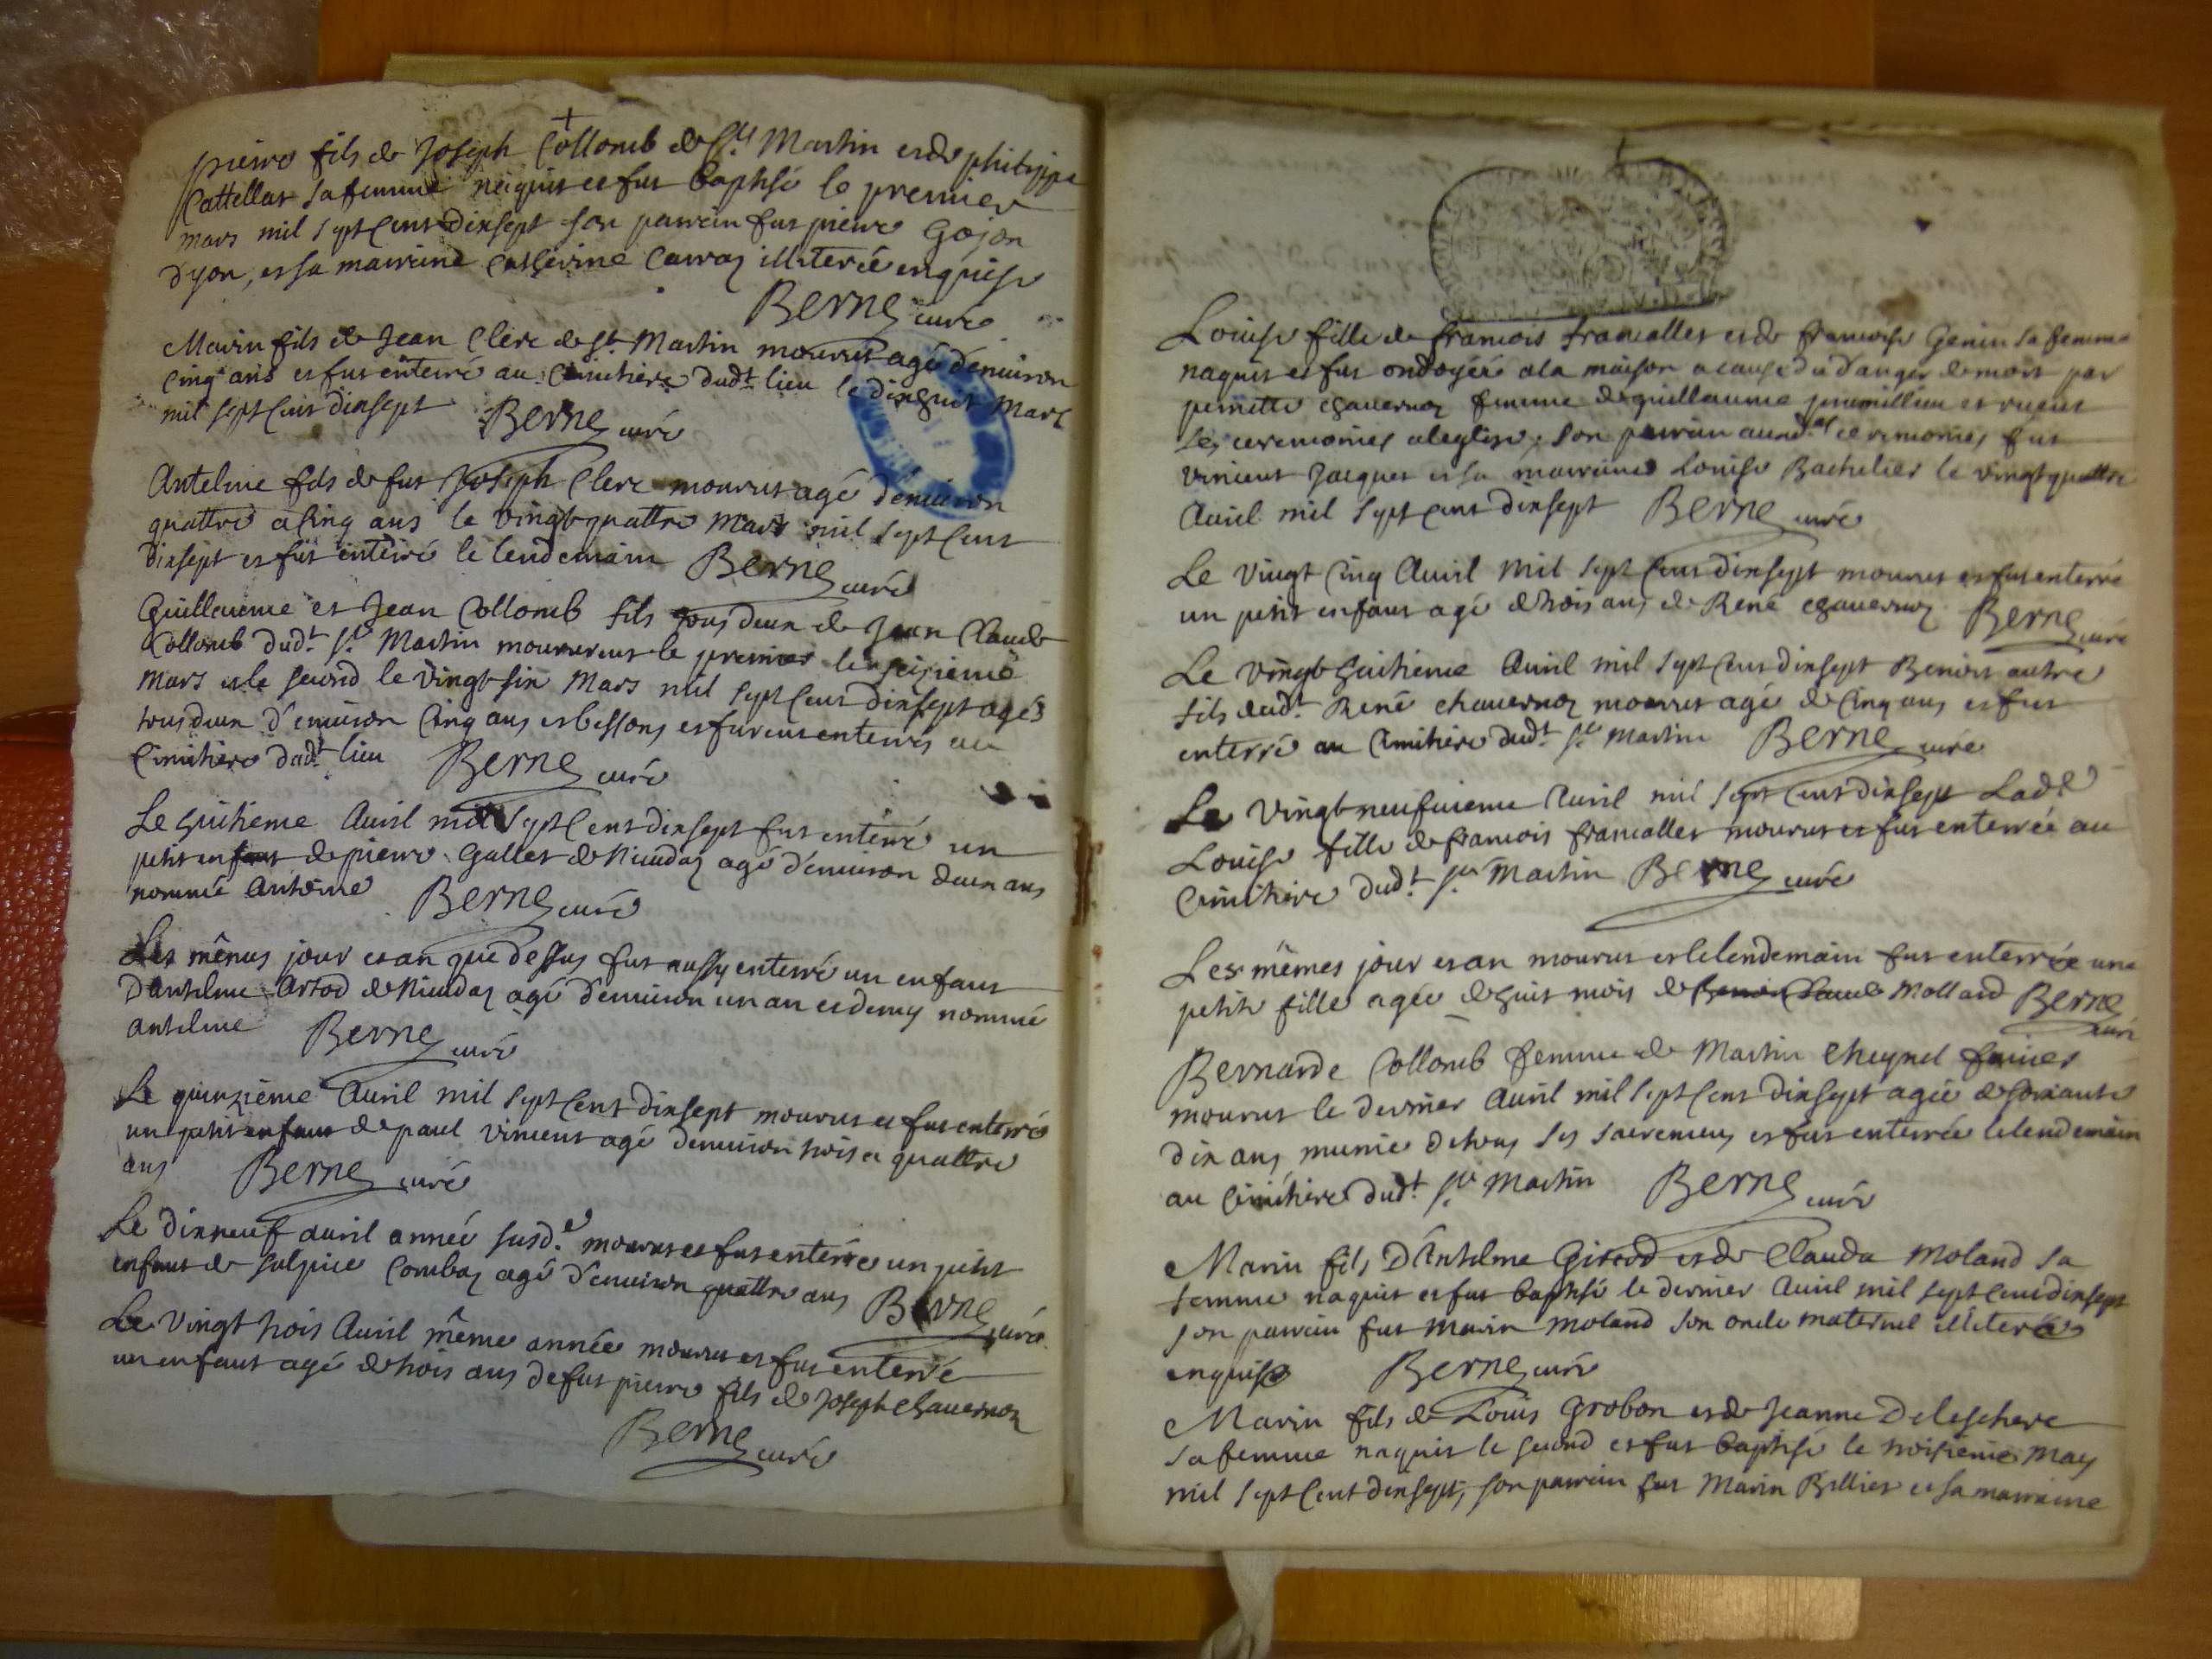 pierre fils de Joseph Collomb de St. Martin et de philippe
Cattellas sa femme naquit et fut baptisé le premier
mars mil sept cent dixsept son parrein fut pierre Gojon
d'yon, et sa marraine Catherine Carraz illiterée enquise
Berne curé
Marin fils de Jean Clerc de St. Martin mourut agé d'environ
cinq ans et fut enterré au cimitiere dudt. lieu le dixhuit Mars
mil sept cent dixsept Berne curé
Antelme fils de fut Joseph Clerc mourut agé d'environ
quattre a cinq ans le vingtquattre mars mil sept cent
dixsept et fut enterré le lendemain Berne curé
Guillaume et Jean Collomb fils tous deux de Jean Claude
Collomb dudt. St. Martin moururent le premier le seizieme
Mars et le second le vingtsix Mars mil sept cent dixsept agés
tous deux d'environ cinq ans et bessons et furent enterrés au
cimitiere dudt. lieu Berne curé
Le huitieme Avril mil sept cent dixsept fut enterré un
petit enfant de pierre Gallet de agé d'environ deux ans
nommé Antoine Berne curé
Les mêmes jour et an que dessus fut aussy enterré un enfant
D'antelme Artod de agé d'environ un an et demy nommé
antelme Berne curé
Le quinzième Avril mil sept cent dixsept mourut et fut enterré
un petit enfant de paul vincent agé d'environ trois a quattre
ans Berne curé
Le dixneuf avril année susd.e mourut et fut enterré un petit
enfant de sulpice Combaz agé d'environ quattre ans Berne curé
Le vingt trois Avril même année mourut et fut enterré
un enfant agé de trois ans de fut pierre fils de Joseph chavernoz
Berne curé
Louise fille de francois francallet et de francoise Genin sa femme
naquit et fut ondoyée a la maison a cause du danger de mort par
pernette chavernoz femme de guillaume et receut
les ceremonies a leglise. son parrain aux d.es ceremonies fut
vincent Jacquet et sa marraine Louise Bachelier le vingtquattre
Avril mil sept cent dixsept Berne curé
Le vingt cinq Avril mil sept cent dixsept mourut et fut enterré
un petit enfant agé de trois ans de René chavernoz Berne curé
Le vingthuitieme Avril mil sept cent dixsept Benoit autre
fils dudt. René chavernoz mourut agé de cinq ans et fut
enterré au cimitiere dudt. St. Martin Berne curé
Le vingtneufvieme Avril mil sept cent dixsept Lad.e
Louise fille de francois francallet mourut et fut enterrée au
cimithiere dudt. St. Martin Berne curé
Les mêmes jour et an mourut et le lendemain fut enterrée une
petite fille agée de huit mois de Mollard Berne curé
Bernarde Collomb femme de Martin Cheynel
mourut le dernier Avril mil sept cent dixsept agée de soixante
dix ans munie de tous ses sacremens et fut enterrée le lendemain
au cimithiere dudt. St. Martin Berne curé
Marin fils D'Antelme Girerd et de Clauda Moland sa
femme naquit et fut baptisé le dernier Avril mil sept cent dixsept
son parrain fut Marin Moland son oncle maternel illiteré
enquise Berne curé
Marin fils de Louis Grobon et de Jeanne Deleschere
sa femme naquit le second et fut baptisé le troisieme May
mil sept cent dixsept, son parrein fut Marin Billiet et sa marraine